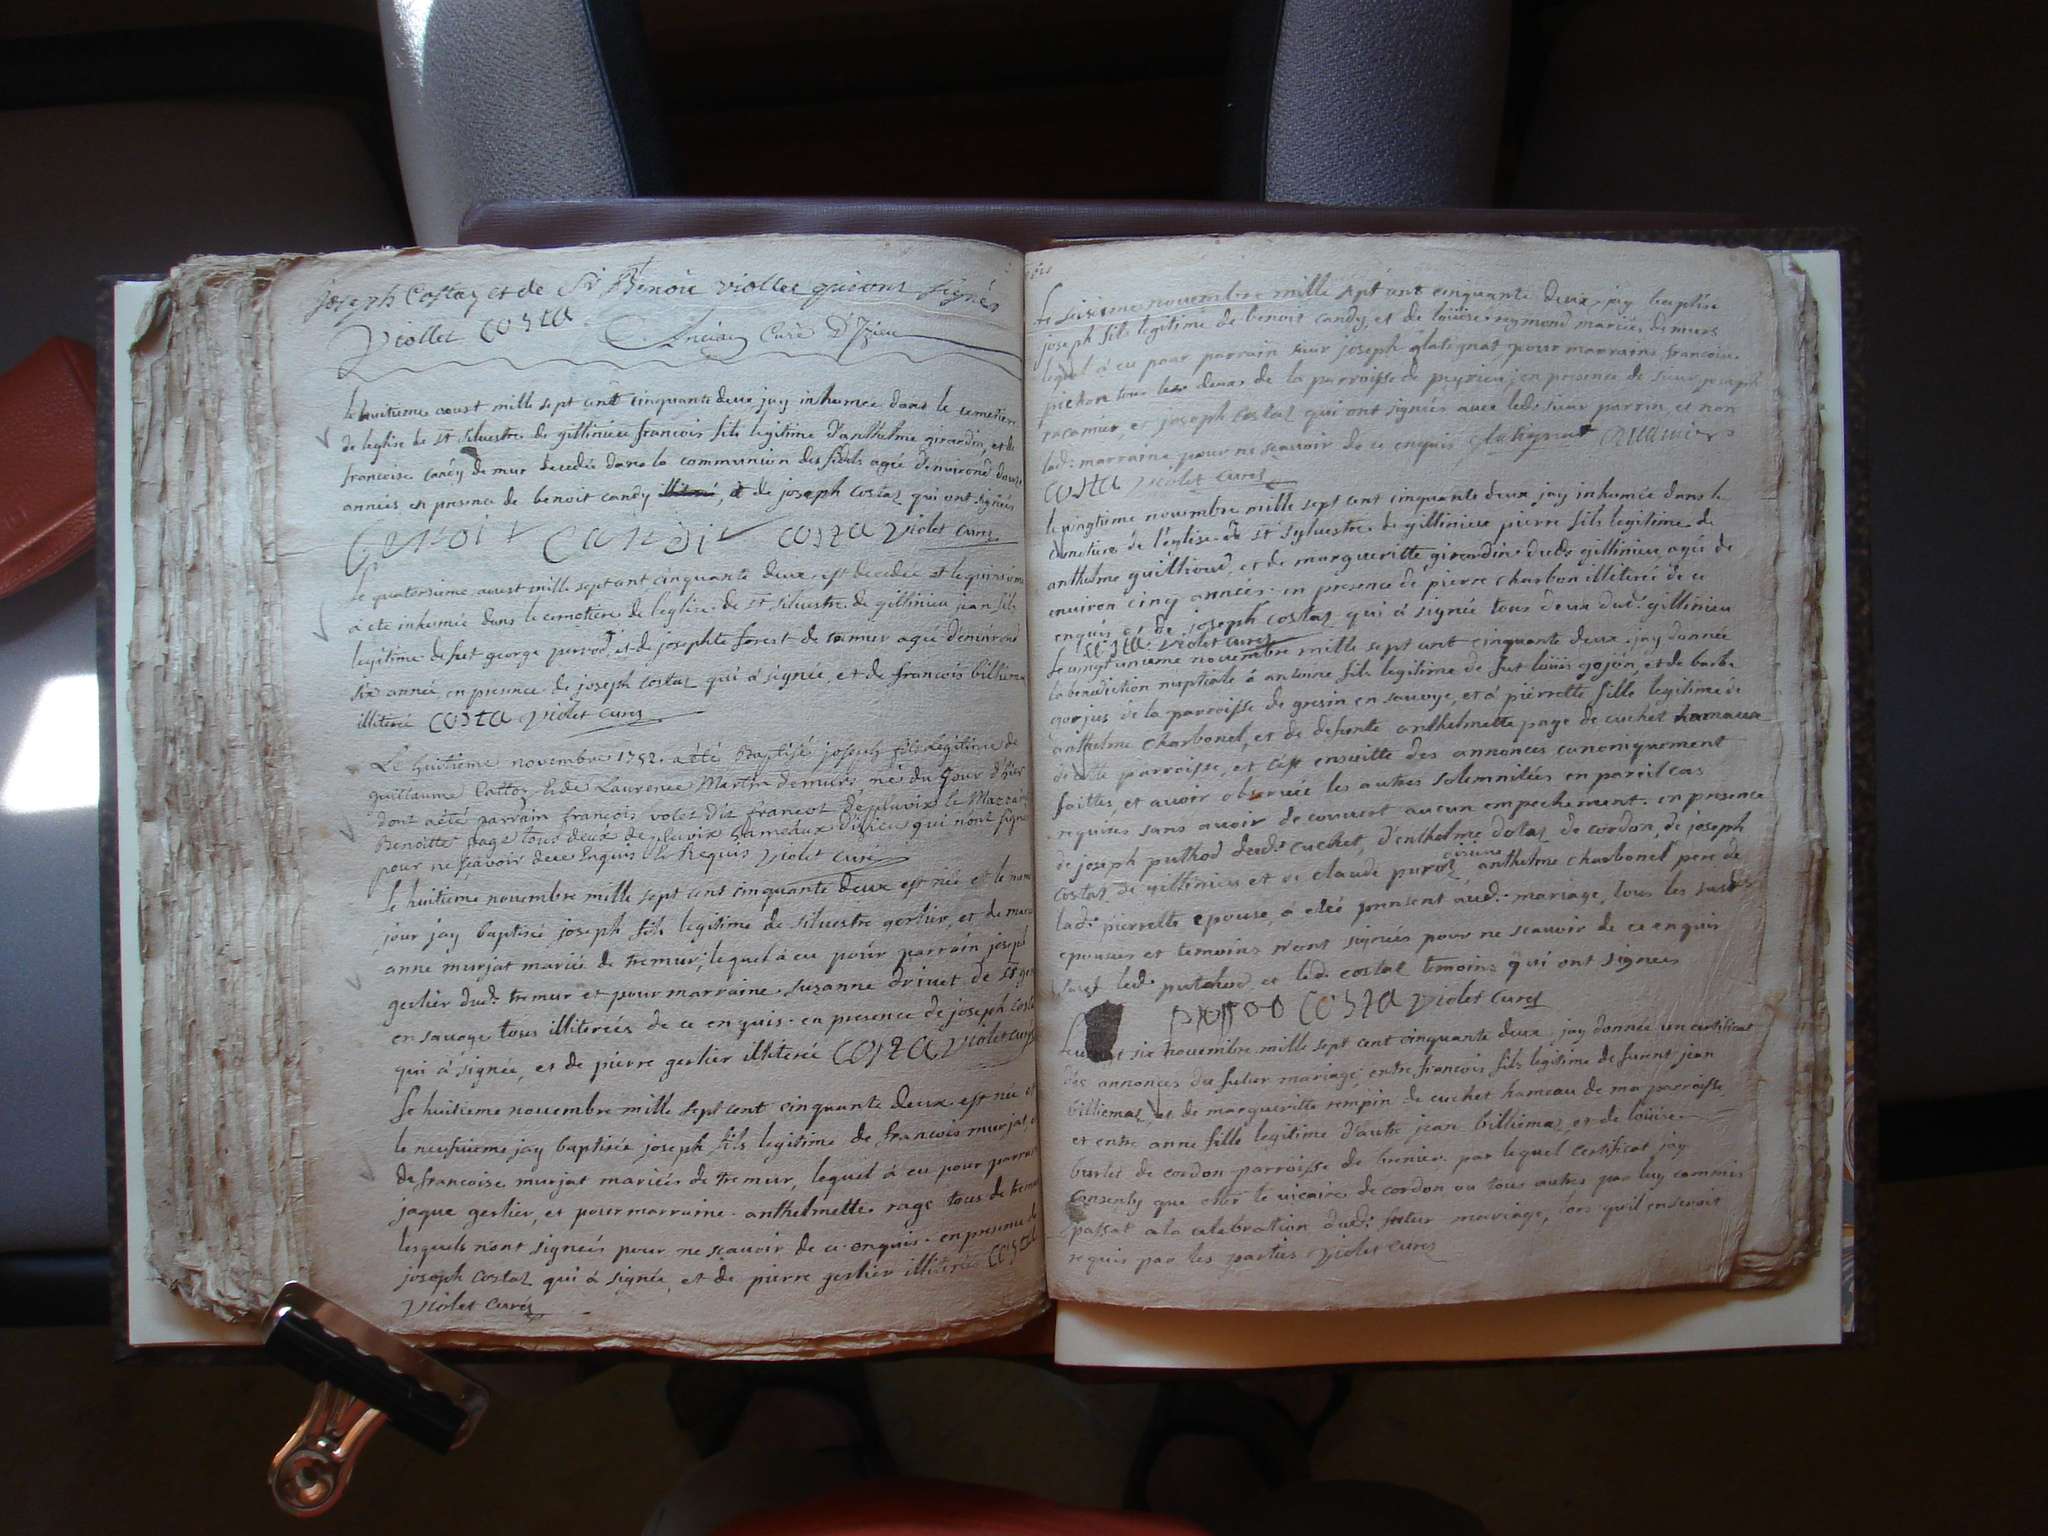 joseph Costaz et de Sr Benoit viollet qui ont signés
Viollet costa Curé D'Izieu
le huitieme aoust mille sept cent cinquante deux jay inhumée dans le cemetiere
de leglise de st siluestre de gillinieu francois fils legitime d'anthelme girardin, et de
francoise candy de mur decedée dans la communion des fidels agée d'environd douze
années en presence de benoit candy et de joseph costaz qui ont signées
benoit Candi costa violet curez
le quatorsieme aoust mille sept cent cinquante deux est decedée et le quinsieme
à eté inhumée dans le cemetiere de leglise de st siluestre de gillinieu jean fils
legitime de fut george perrod, et de josephte forest de tremur agée d'environd
six année en presence de joseph costaz qui à signée, et de francois billiema
illiterée costa violet curez
Le huitieme novembre 1752 a été Baptisé joseph fils legitime de
guillaume Cattoz et de Laurence Martin demurs né du jour d'hier
dont a été parrain françois volet dit francot de pluvix le
Benoitte page tous deux de pluvix hameaux d'isieu qui nont signé
pour ne sçavoir deue Enquis et Requis violet curé
le huitieme novembre mille sept cent cinquante deux est née et le meme
jour jay baptisée joseph fils legitime de siluestre gerlier, et de
anne murjat mariée de tremur, lequel à eu pour parrain joseph
gerlier dud: tremur et pour marraine suzanne drivet de st
en savoye tous illiterées de ce enquis en presence de joseph costa
qui à signée, et de pierre gerlier illiterée costa violet curez
Le huitieme novembre mille sept cent cinquante deux est née et
le neufuieme jay baptisée joseph fils legitime de francois murjat, et
de francoise murjat mariées de tremur, lequel à eu pour parrain
jaque gerlier, et pour marraine anthelmette rage tous de tremur
lesquels n'ont signées pour ne scauoir de ce enquis en presence de
joseph costaz qui à signée et de pierre gerlier illiterée costa
violet curéz
Le seisieme novembre mille sept cent cinquante deux jay baptisée
joseph fils legitime de benoit candy, et de loüise reymond mariées de murs
lequel à eu pour parrain sieur joseph glatignat pour marraine francoise
pichon tous les deux de la parroisse de peyrieu, en presence de sieur joseph
racamier, et joseph costaz qui ont signées avec led: sieur parrin, et non
lad: marraine pour ne scauoir de ce enquis glatignat
costa violet curez
le vingtieme novembre mille sept cent cinquante deux jay inhumée dans le
cemetiere de l'église de st syluestre de gillinieu pierre fils legitime de
anthelme guillioud, et de margueritte girardin dud: gillinieu agée de
environ cinq années en presence de pierre charbon illiterée de ce
enquis et de joseph costaz qui à signée tous deux dud: gillinieu
costa violet curez
Le vingt unieme novembre mille sept cent cinquante deux jay donnée
la benediction nuptiale à antoine fils legitime de fut loüis gojon, et de barbe
gorjus de la parroisse de gresin en savoye, et à pierrette fille legitime de
anthelme charbonel, et de defunte anthelmette page de cuchet hameau
de cette parroisse, et c'est ensuitte des annonces canoniquement
faittes, et avoir observée les autres solemnitées en pareil cas
requises sans avoir decouvert aucun empechement en presence
de joseph puthod dud: cuchet, d'enthelme dolaz de cordon, de joseph
costaz de gillinieu et de claude anthelme charbonel pere de
lad: pierrette epouse à eteé present aud: mariage, tous les susd:
epouses et temoins n'ont signées pour ne scauoir de ce enquis
sauf led: puthod et led: costaz temoins qui ont signees
puttod costa violet curez
Le vingt six novembre mille sept cent cinquante deux jay donnée un certificat
des annonces du futur mariage entre francois fils legitime de funt jean
billiemaz, et de margueritte rempin de cuchet hameau de ma parroisse
et entre anne fille legitime d'autre jean billiemaz, et de loüise
burlet de cordon parroisse de brenier par lequel certificat jay
consenty que le vicaire de cordon ou tous autres par luy commis
passat a la celebration dud: futur mariage, lors qu'il en seroit
requis par les parties violet curez